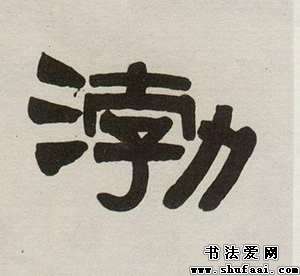 渤
书法爱网
www.shufaai.com